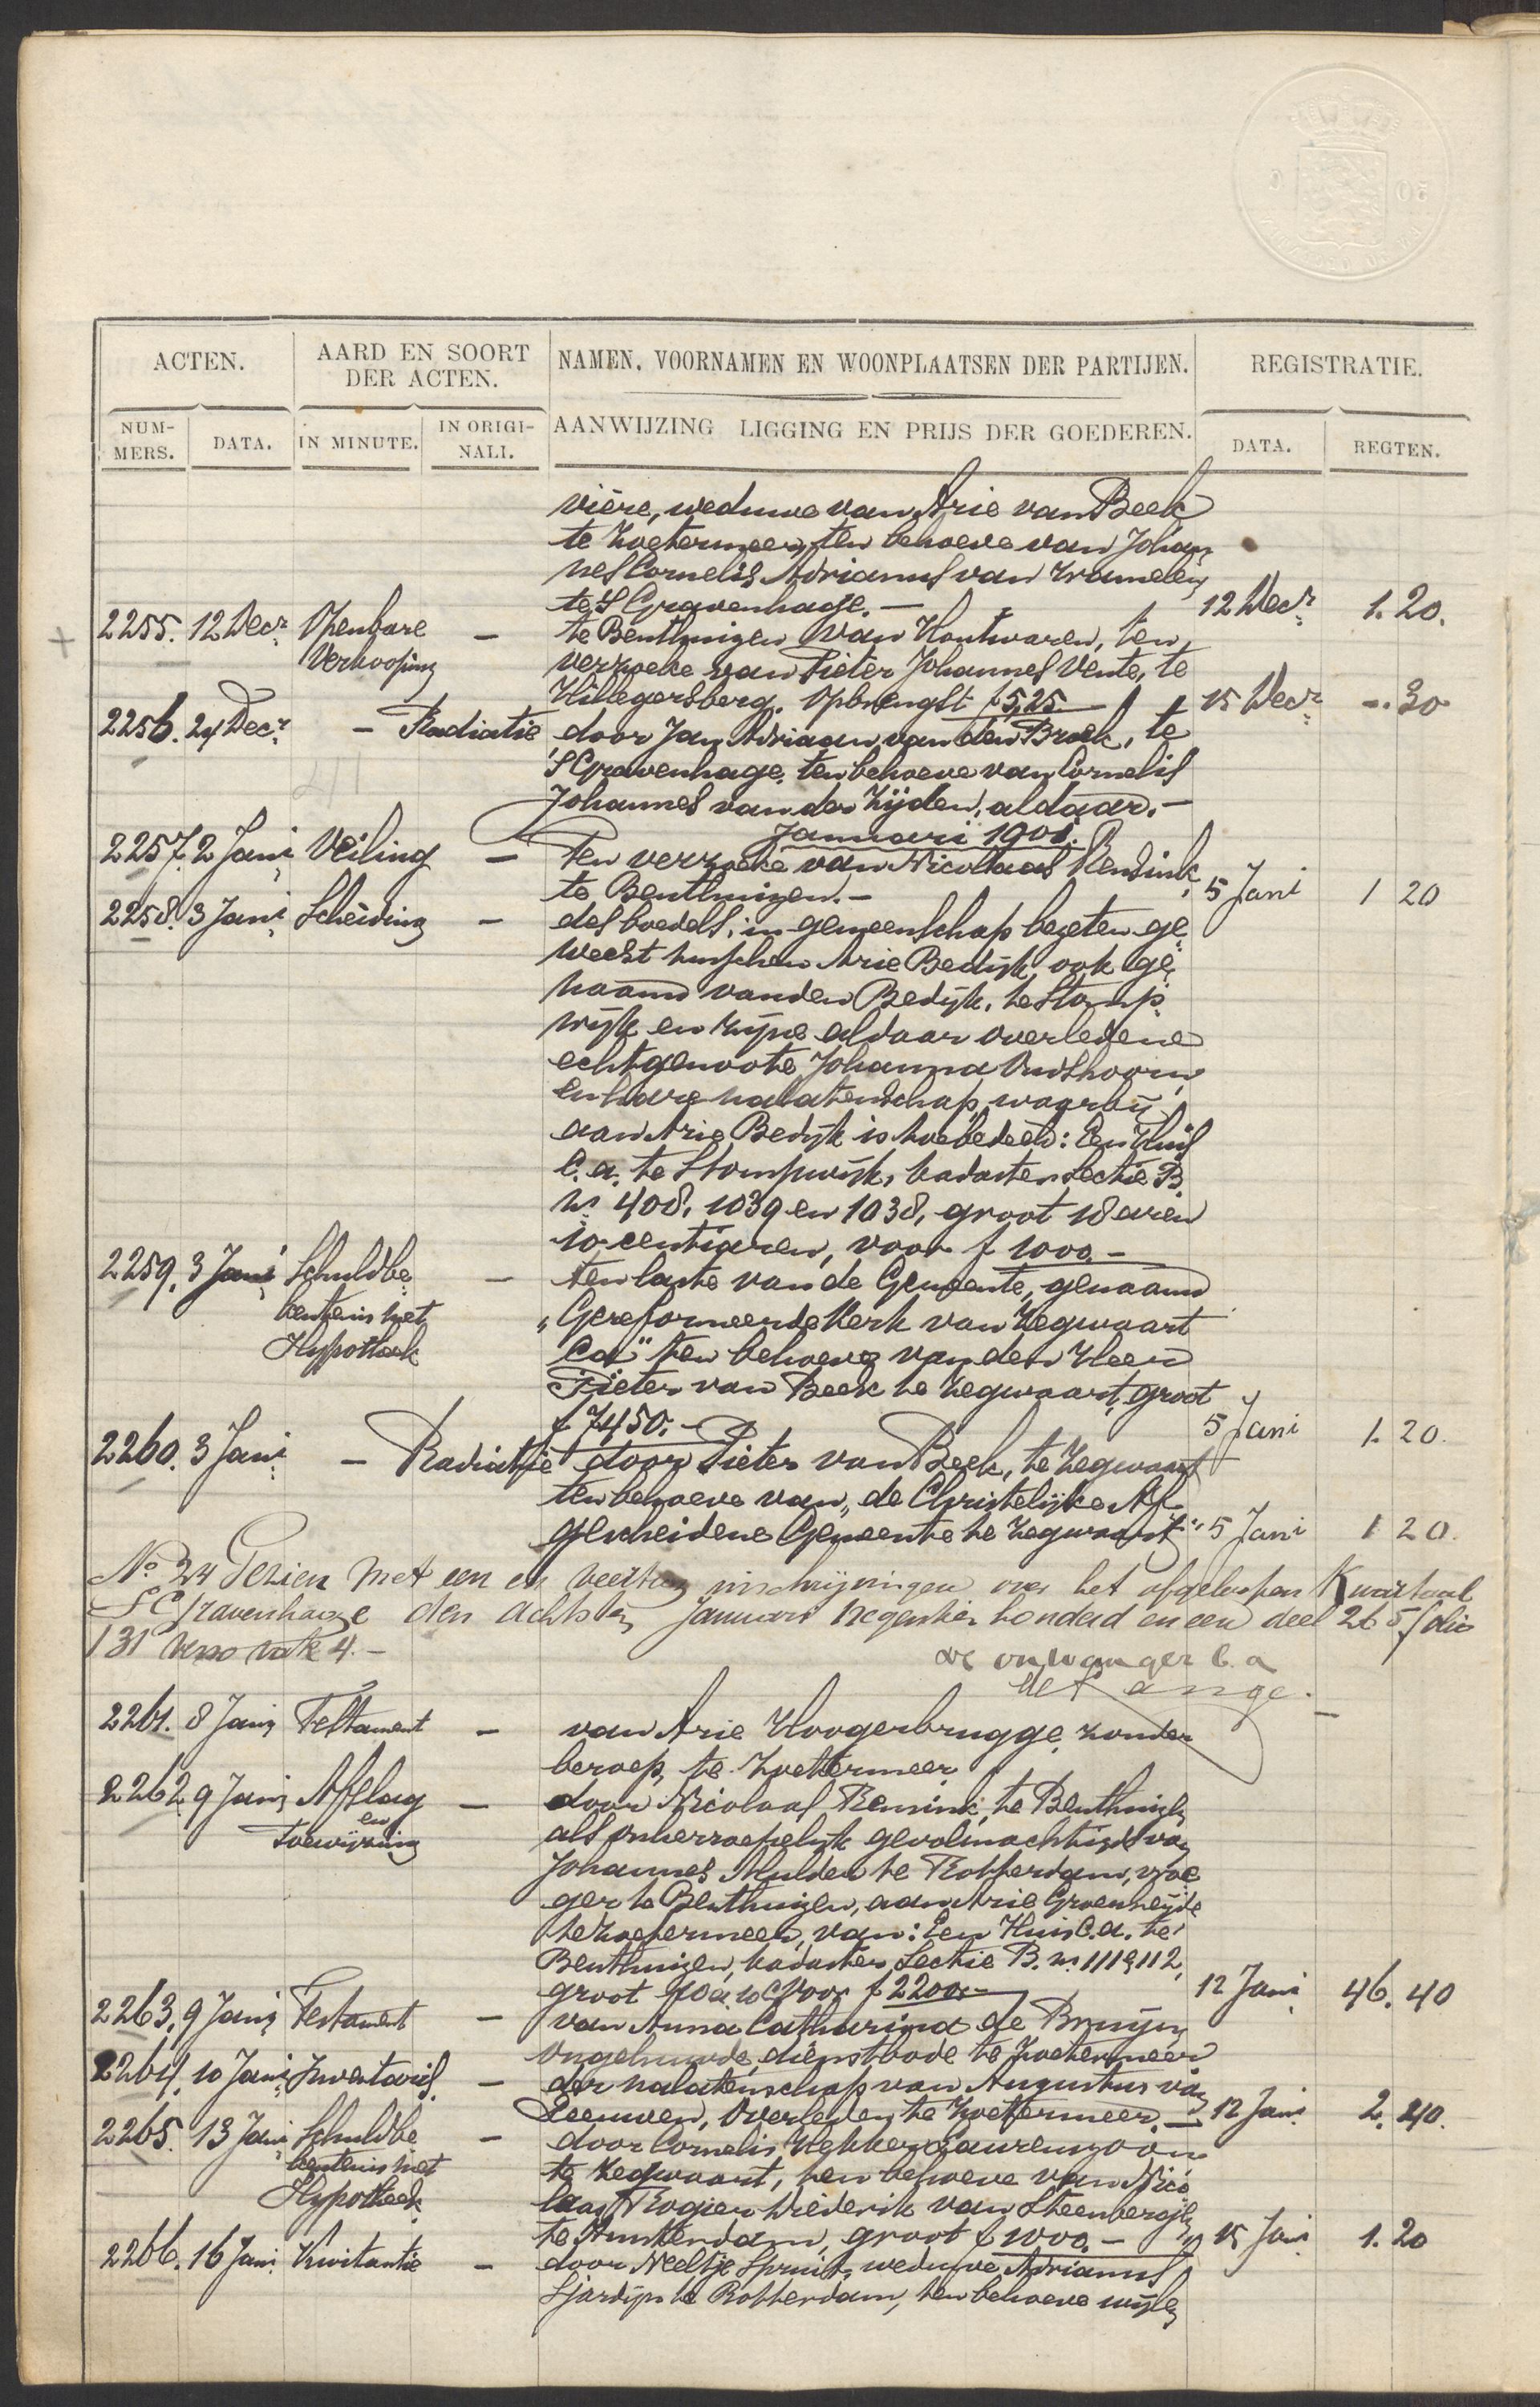 ACTEN.
AARD EN SOORT DER ACTEN.
NAMEN, VOORNAMEN EN WOONPLAATSEN DER PARTIJEN.
REGISTRATIE.
NUM-MERS.
DATA.
IN MINUTE.
IN ORIGI-NALI.
AANWIJZING LIGGING EN PRIJS DER GOEDEREN.
DATA.
REGTEN.
vière, weduwe van Arie van Beek
te Zoetermeer, ten behoeve van Johan-
nes Cornelis Adrianus van
te 's Gravenhage. — 12 Decr. 1.20.
2255. 12 Decr. Openbare — te Benthuizen van Houtwaren, ten
Verkooping verzoeke van Pieter Johannes Vente, te
Hillegersberg. Opbrengst f 5,25 15 Decr. -.30
2256. 24 Decr. — Radiatie door Jan Adriaan van den Broek, te
'S Gravenhage, ten behoeve van Cornelis
Johannes van der Zijden, aldaar. —
Januari 1901.
2257. 2 Jani. Veiling — Ten verzoeke van Nicolaas Rensink,
te Benthuizen. — 5 Jani 1 20
2258. 3 Jani. Scheiding — des boedels, in gemeenschap bezeten ge-
weest tusschen Arie Bedijk, ook ge-
naamd van den Bedijk, te Stomp-
wijk en zijne aldaar overledene
echtgenoote Johanna Oudshoorn,
en hare nalatenschap, waarbij
aan Arie Bedijk is toebedeeld: Een Huis
c.a. te Stompwijk, kadaster Sectie B.
Nr. 408, 1039 en 1038, groot 18 aren
10 centiaren, voor f 1000.-
2259. 3 Jani Schuldbe- — ten laste van de Gemeente, genaamd
kentenis met „Gereformeerde Kerk van Zegwaart
Hypotheek Ca" ten behoeve van den Heer
Pieter van Beek te Zegwaart, groot
f 7450.- 5 Jani 1. 20.
2260. 3 Jani. — Radiatie door Pieter van Beek, te Zegwaart
ten behoeve van „de Christelijke Af-
gescheidene Gemeente te Zegwaart". 5 Jani 1 20.
No 24 Gezien met een en veertig inschrijvingen over het afgeloopen Kwartaal
S Gravenhage den achtsten Januari negentien honderd en een deel 265 folio
131 verso vak 4.-
de ontvanger b.a
2261. 8 Jani Testament — van Arie Hoogerbrugge, zonder —
beroep, te Zoetermeer
2262. 9 Jani Afslag — door Nicolaas Rensink, te Benthuizen
en als onherroepelijk gevolmachtigde van
toewijzing Johannes Mulder te Rotterdam, vroe-
ger te Benthuizen, aan Arie Groeneweg
te Zoetermeer, van: Een Huis c.a. te
Benthuizen, kadaster Sectie B. nr. 111 & 112,
groot voor f 2200.- 12 Jani 46.40
2263. 9 Jani Testament — van Anna Catharina de Bruijn,
ongehuwde dienstbode te Zoetermeer
2264. 10 Jani. Inventaris. — der nalatenschap van Augustus van
Leeuwen, Overleden te Zoetermeer. — 12 Jani. 2. 40.
2265. 13 Jani Schuldbe- — door Cornelis Hekker Laurenszoon
kentenis met te Zegwaart, ten behoeve van Nico-
Hypotheek. laas Rogier Diederik van Steenbergen
te Amsterdam, groot f 1000.- 15 Jani. 1. 20
2266. 16 Jani. Kwitantie — door Neeltje Spruit, weduwe Adrianus
Sjardijn te Rotterdam, ten behoeve wijlen